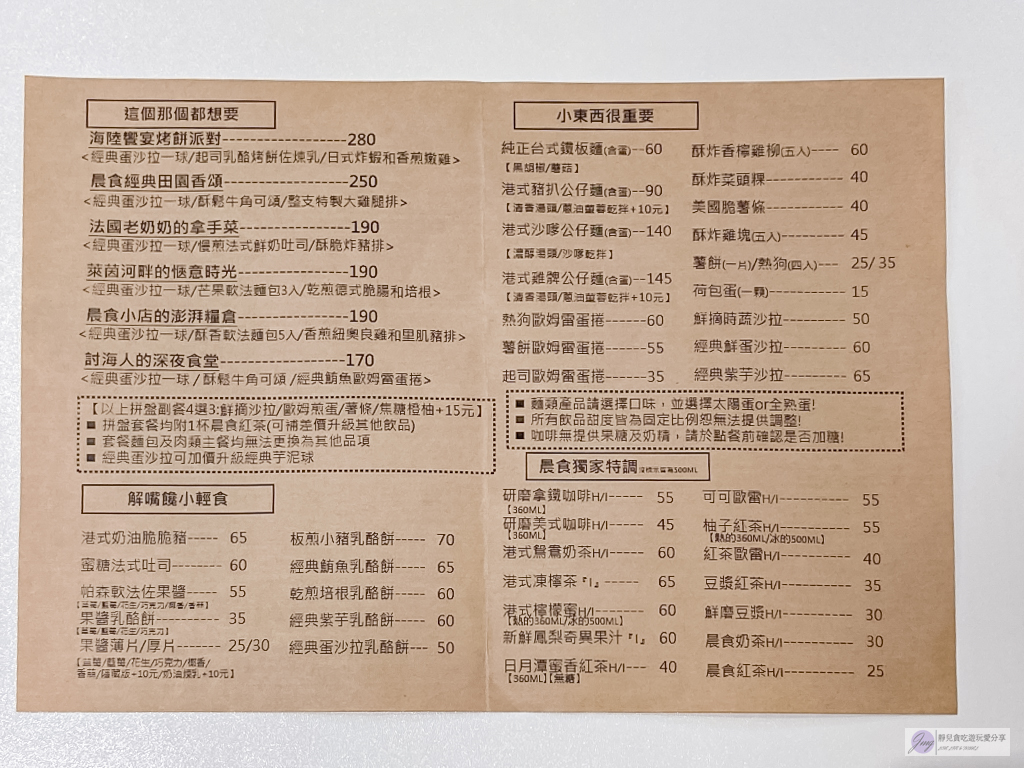 這個那個都想要
海陸饗宴烤餅派對----------------280
<經典蛋沙拉一球/起司乳酪烤餅佐煉乳/日式炸蝦和香煎嫩雞>
晨食經典田園香頌----------------250
<經典蛋沙拉一球/酥鬆牛角可頌/整支特製大雞腿排>
法國老奶奶的拿手菜--------------190
<經典蛋沙拉一球/慢煎法式鮮奶吐司/酥脆炸豬排>
萊茵河畔的愜意時光--------------190
<經典蛋沙拉一球/芒果軟法麵包3入/乾煎德式脆腸和培根>
晨食小店的澎湃糧倉--------------190
<經典蛋沙拉一球/酥香軟法麵包5入/香煎紐奧良雞和里肌豬排>
討海人的深夜食堂----------------170
<經典蛋沙拉一球/酥鬆牛角可頌/經典鮪魚歐姆雷蛋捲>
【以上拼盤副餐4選3:鮮摘沙拉/歐姆煎蛋/薯條/焦糖橙柚+15元】
■ 拼盤套餐均附1杯晨食紅茶(可補差價升級其他飲品)
■ 套餐麵包及肉類主餐均無法更換為其他品項
■ 經典蛋沙拉可加價升級經典芋泥球
解嘴饞小輕食
港式奶油脆脆豬----- 65
蜜糖法式吐司-------- 60
帕森軟法佐果醬----- 55
【草莓/藍莓/花生/巧克力/椰香/香蒜】
果醬乳酪餅---------- 35
【草莓/藍莓/花生/巧克力】
果醬薄片/厚片------- 25/30
【草莓/藍莓/花生/巧克力/椰香/
香蒜/隱藏版+10元/奶油煉乳+10元】
板煎小豬乳酪餅----- 70
經典鮪魚乳酪餅----- 65
乾煎培根乳酪餅----- 60
經典紫芋乳酪餅----- 60
經典蛋沙拉乳酪餅--- 50
小東西很重要
純正台式鐵板麵(含蛋)--60
【黑胡椒/蘑菇】
港式豬扒公仔麵(含蛋)--90
【清香湯頭/蔥油蕈蓉乾拌+10元】
港式沙嗲公仔麵(含蛋)--140
【濃醇湯頭/沙嗲乾拌】
港式雞髀公仔麵(含蛋)--145
【清香湯頭/蔥油蕈蓉乾拌+10元】
熱狗歐姆雷蛋捲------60
薯餅歐姆雷蛋捲------55
起司歐姆雷蛋捲------35
酥炸香檸雞柳(五入)---- 60
酥炸菜頭粿----------- 40
美國脆薯條----------- 40
酥炸雞塊(五入)--------- 45
薯餅(一片)/熱狗(四入)--- 25/ 35
荷包蛋(一顆)----------- 15
鮮摘時蔬沙拉--------- 50
經典鮮蛋沙拉--------- 60
經典紫芋沙拉--------- 65
■ 麵類產品請選擇口味，並選擇太陽蛋or全熟蛋!
■ 所有飲品甜度皆為固定比例恕無法提供調整!
■ 咖啡無提供果糖及奶精，請於點餐前確認是否加糖!
晨食獨家特調 沒標示皆為500ML
研磨拿鐵咖啡H/I----- 55
【360ML】
研磨美式咖啡H/I----- 45
【360ML】
港式鴛鴦奶茶H/I----- 60
港式凍檸茶『I』----- 65
港式檸檬蜜H/I------- 60
【熱的360ML/冰的500ML】
新鮮鳳梨奇異果汁『I』 60
日月潭蜜香紅茶H/I--- 40
【360ML】【無糖】
可可歐雷H/I---------- 55
柚子紅茶H/I---------- 55
【熱的360ML/冰的500ML】
紅茶歐雷H/I---------- 40
豆漿紅茶H/I---------- 35
鮮磨豆漿H/I---------- 30
晨食奶茶H/I---------- 30
晨食紅茶H/I---------- 25
靜兒貪吃遊玩愛分享